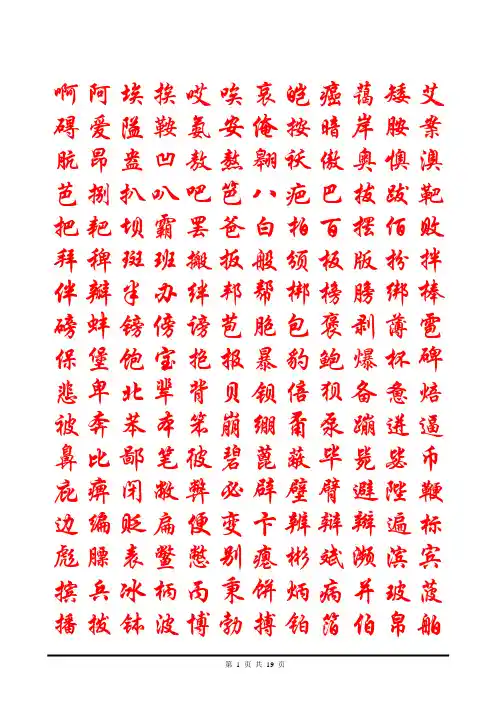 啊阿埃挨哎唉哀皑癌蔼矮艾
碍爱隘鞍氨安俺按暗岸胺案
肮昂盎凹敖熬翱袄傲奥懊澳
芭捌扒叭吧笆八疤巴拔跋靶
把耙坝霸罢爸白柏百摆佰败
拜稗斑班搬扳般颁板版扮拌
伴瓣半办绊邦帮梆榜膀绑棒
磅蚌镑傍谤苞胞包褒剥薄雹
保堡饱宝抱报暴豹鲍爆杯碑
悲卑北辈背贝钡倍狈备惫焙
被奔苯本笨崩绷甭泵蹦迸逼
鼻比鄙笔彼碧蓖蔽毕毙毖币
庇痹闭敝弊必辟壁臂避陛鞭
边编贬扁便变卞辨辩辫遍标
彪膘表鳖憋别瘪彬斌濒滨宾
摈兵冰柄丙秉饼炳病并玻菠
播拨钵波博勃搏铂箔伯帛舶
第 1 页 共 19 页